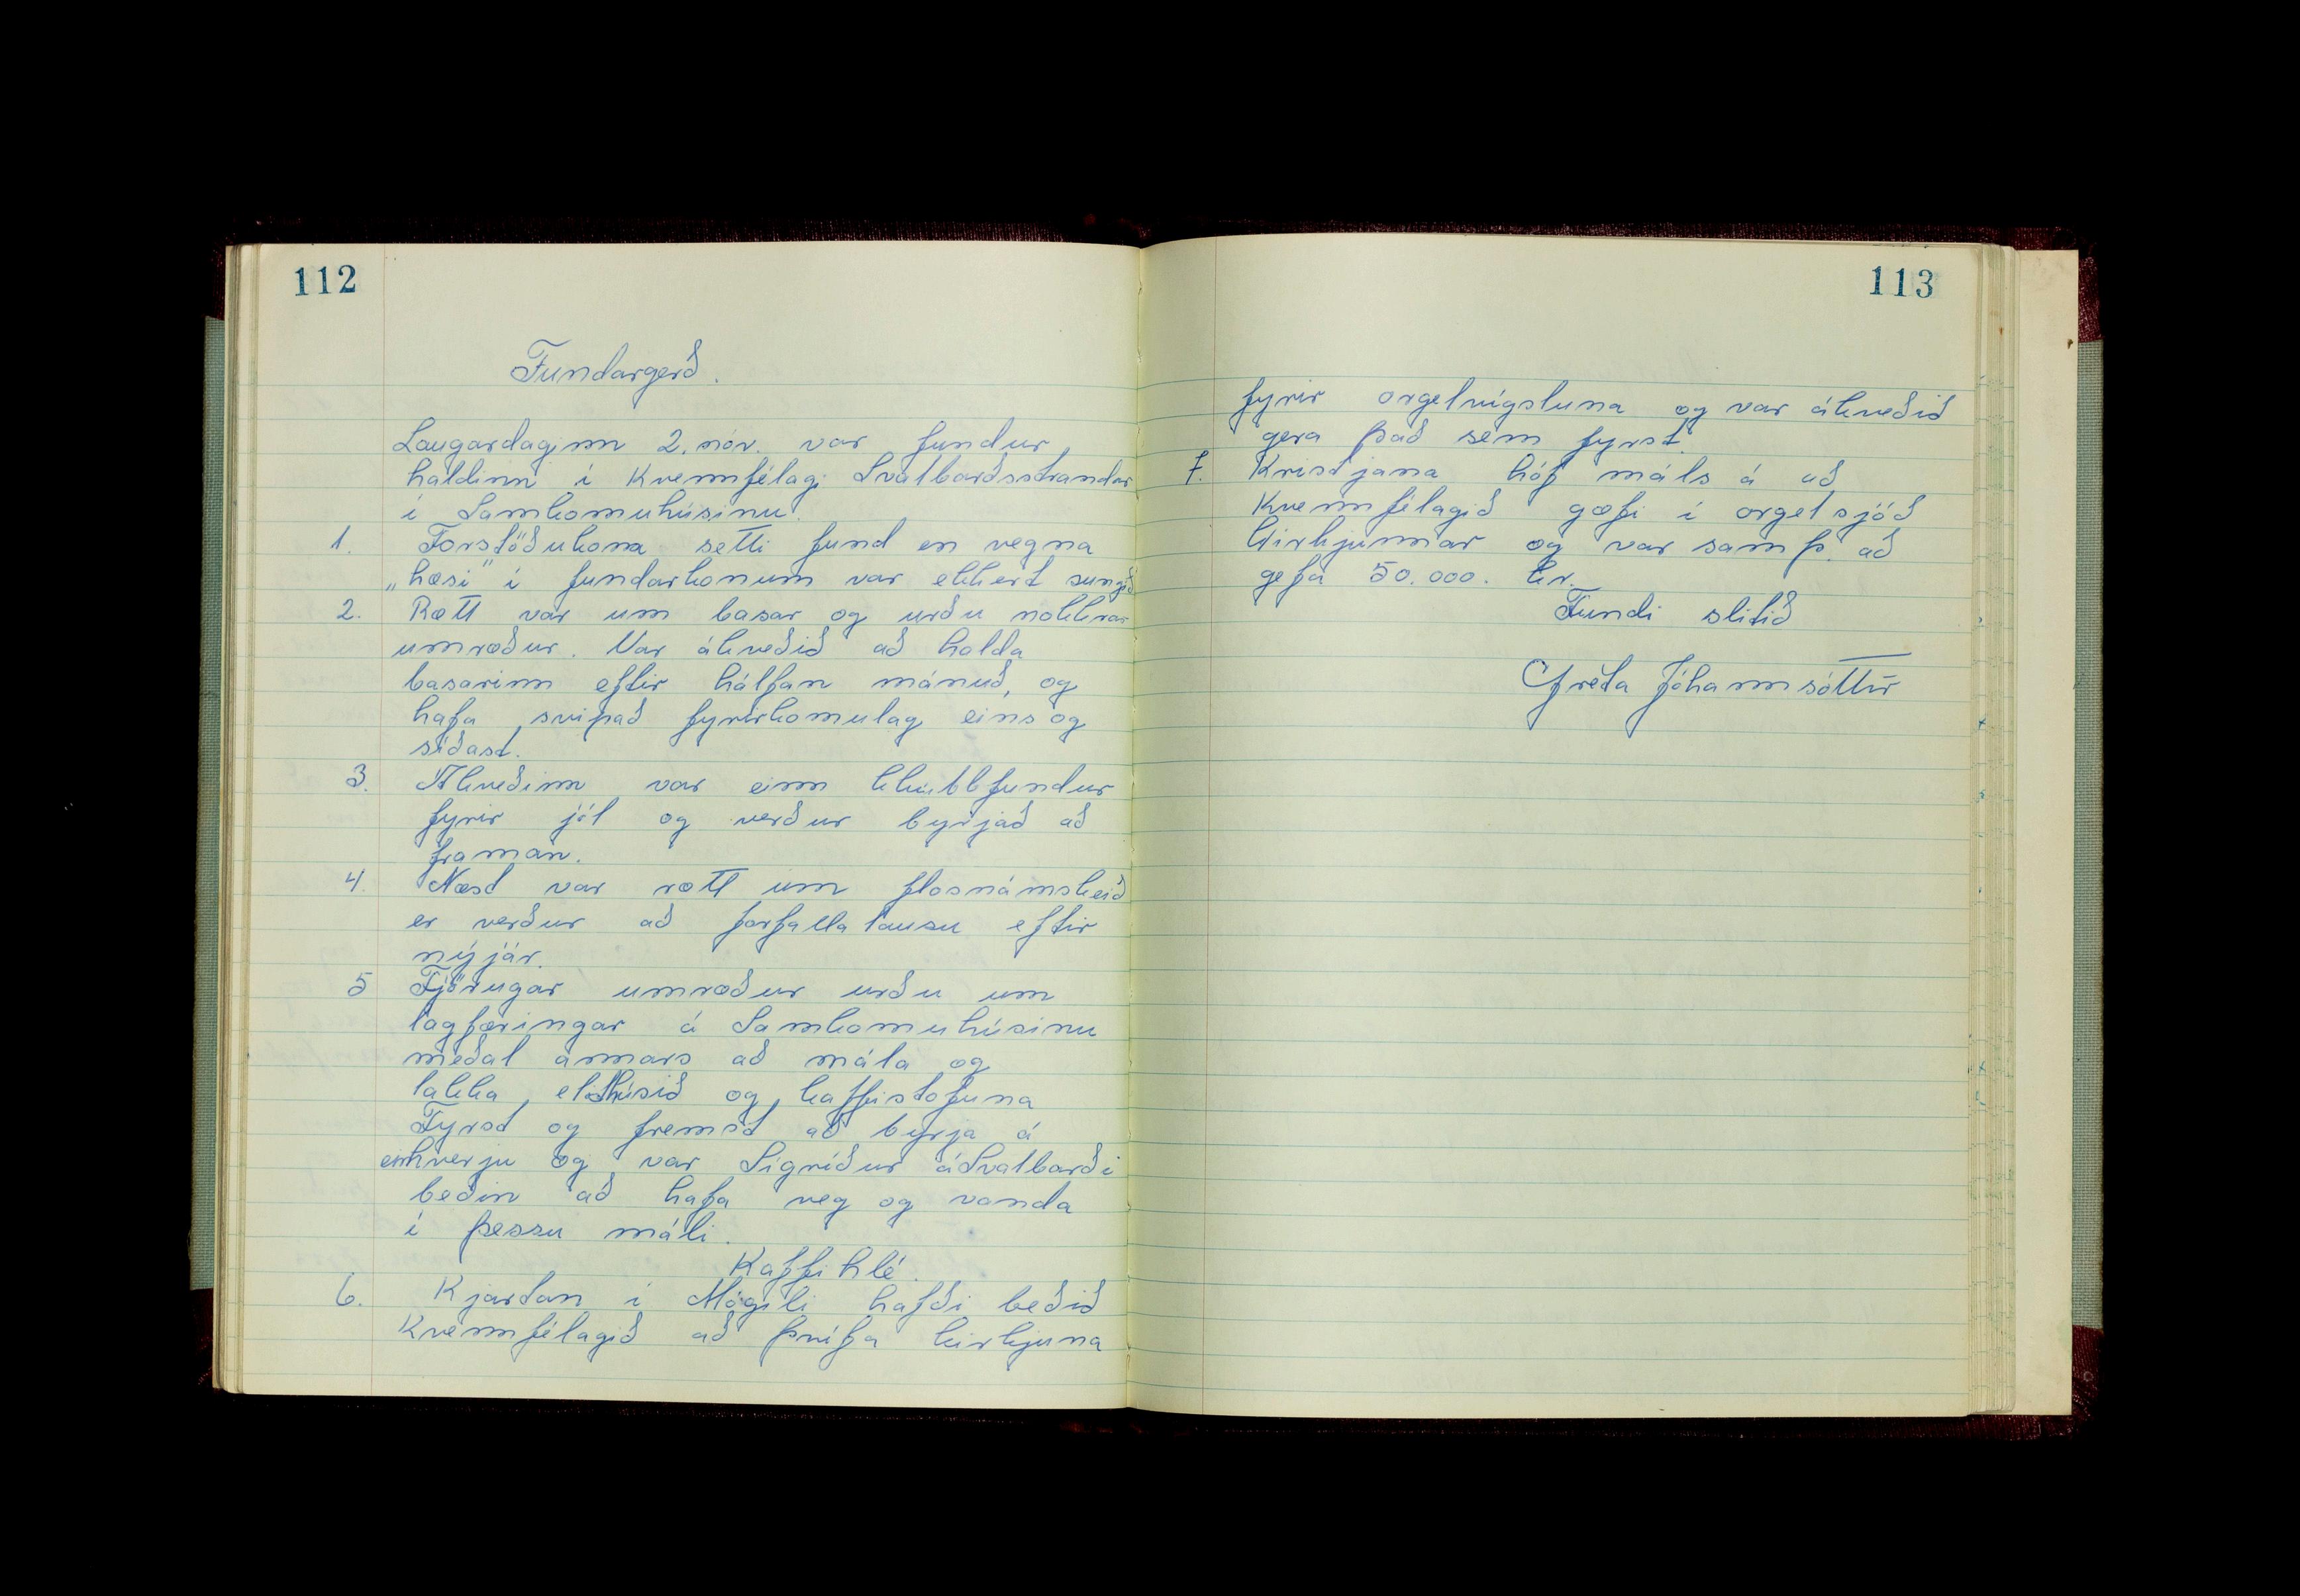 112
Fundargerð.
Laugardaginn 2. nóv. var fundur
haldinn í Kvennfélagi Svalbarðsstrandar
í Samkomuhúsinu.
1. Forstöðukona setti fund en vegna
„hæsi" í fundarkonum var ekkert sungið
2. Rætt var um basar og urðu nokkrar
umræður. Var ákveðið að halda
basarinn eftir hálfan mánuð, og
hafa svipað fyrirkomulag eins og
síðast.
3. Ákveðinn var einn klúbbfundur
fyrir jól og verður byrjað að
framan.
4. Næst var rætt um flosnámskeið
er verður að forfallalausu eftir
nýjár.
5 Fjörugar umræður urðu um
lagfæringar á Samkomuhúsinu
meðal annars að mála og
lakka eldhúsið og kaffistofuna
Fyrst og fremst að byrja á
einhverju og var Sigríður á Svalbarði
beðin að hafa veg og vanda
í þessu máli.
Kaffihlé.
6. Kjartan í Mógili hafði beðið
Kvennfélagið að þrífa kirkjuna
113
fyrir orgelvígsluna og var ákveðið
gera það sem fyrst.
7. Kristjana hóf máls á að
Kvennfélagið gæfi í orgelsjóð
kirkjunnar og var samþ. að
gefa 50.000. kr.
Fundi slitið
Gréta Jóhannsóttir